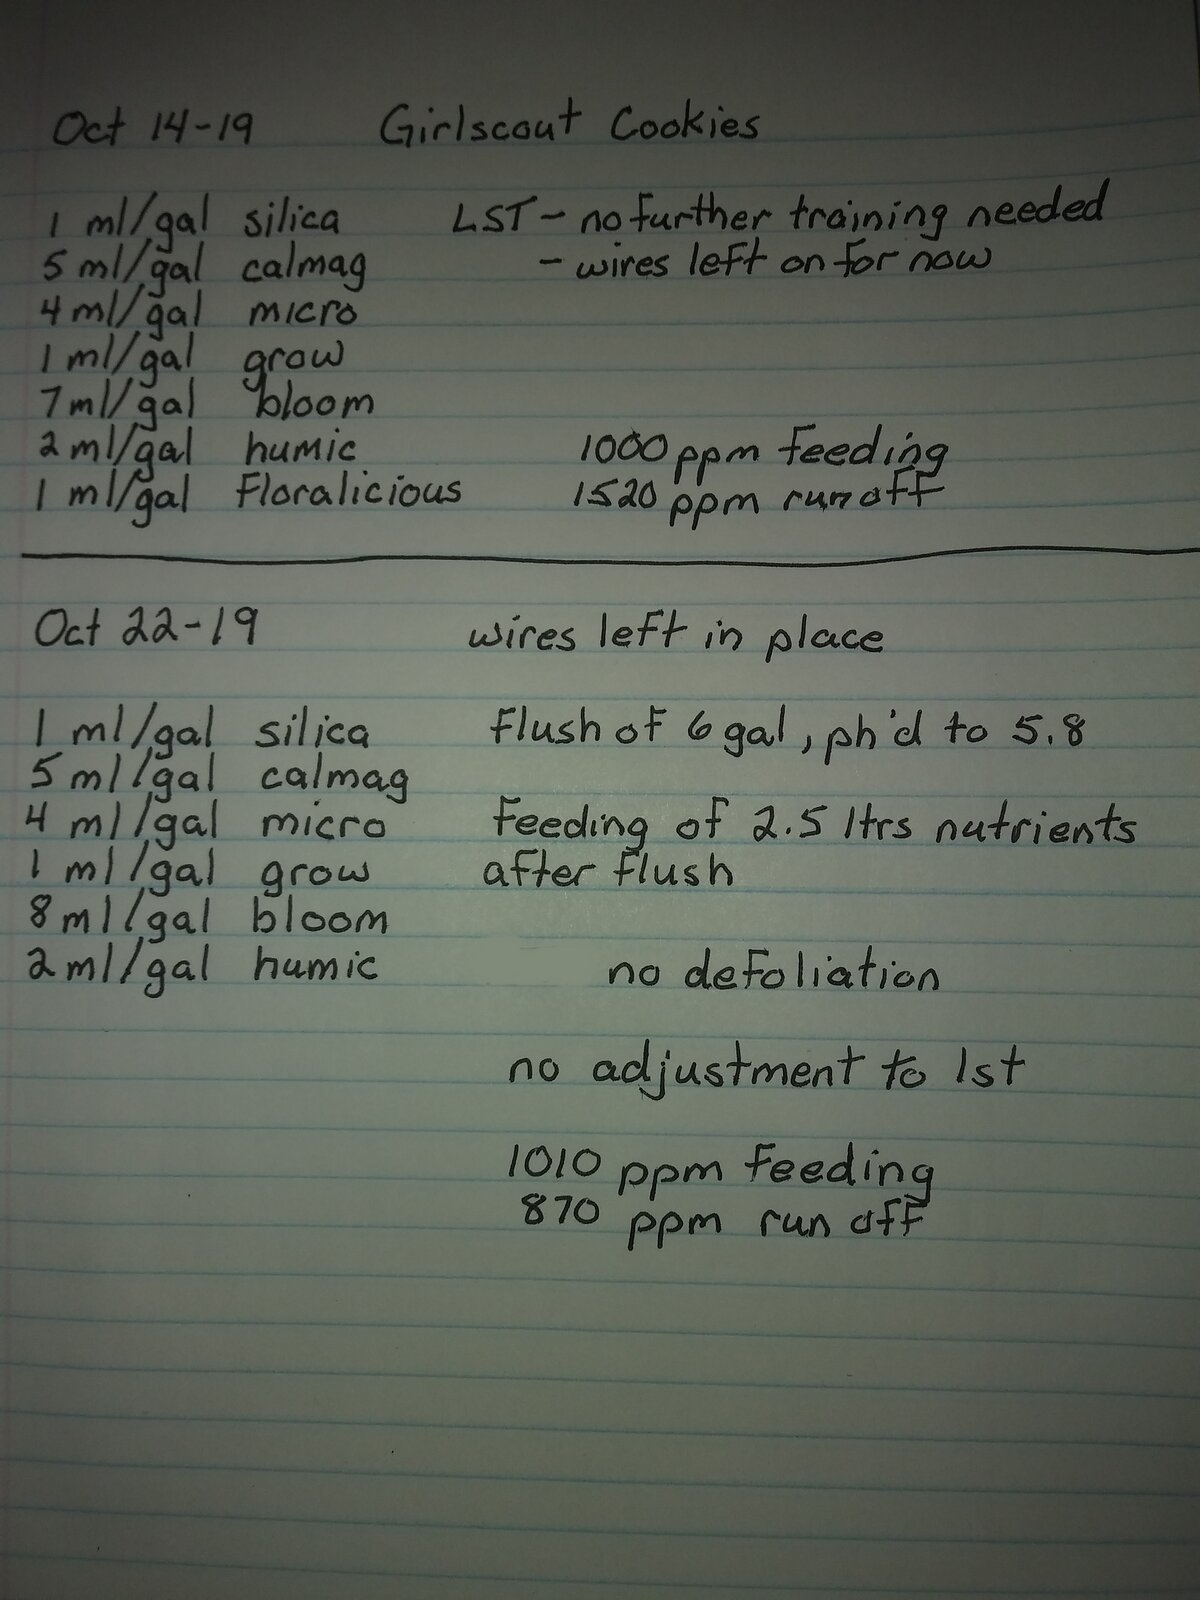 Oct 14-19 Girlscout Cookies
1 ml/gal silica LST - no further training needed
5 ml/gal calmag - wires left on for now
4 ml/gal micro
1 ml/gal grow
7 ml/gal bloom
2 ml/gal humic 1000 ppm feeding
1 ml/gal Floralicious 1520 ppm run off
Oct 22-19 wires left in place
1 ml/gal silica flush of 6 gal, ph'd to 5.8
5 ml/gal calmag
4 ml/gal micro feeding of 2.5 ltrs nutrients
1 ml/gal grow after flush
8 ml/gal bloom
2 ml/gal humic no defoliation
no adjustment to lst
1010 ppm feeding
870 ppm run off